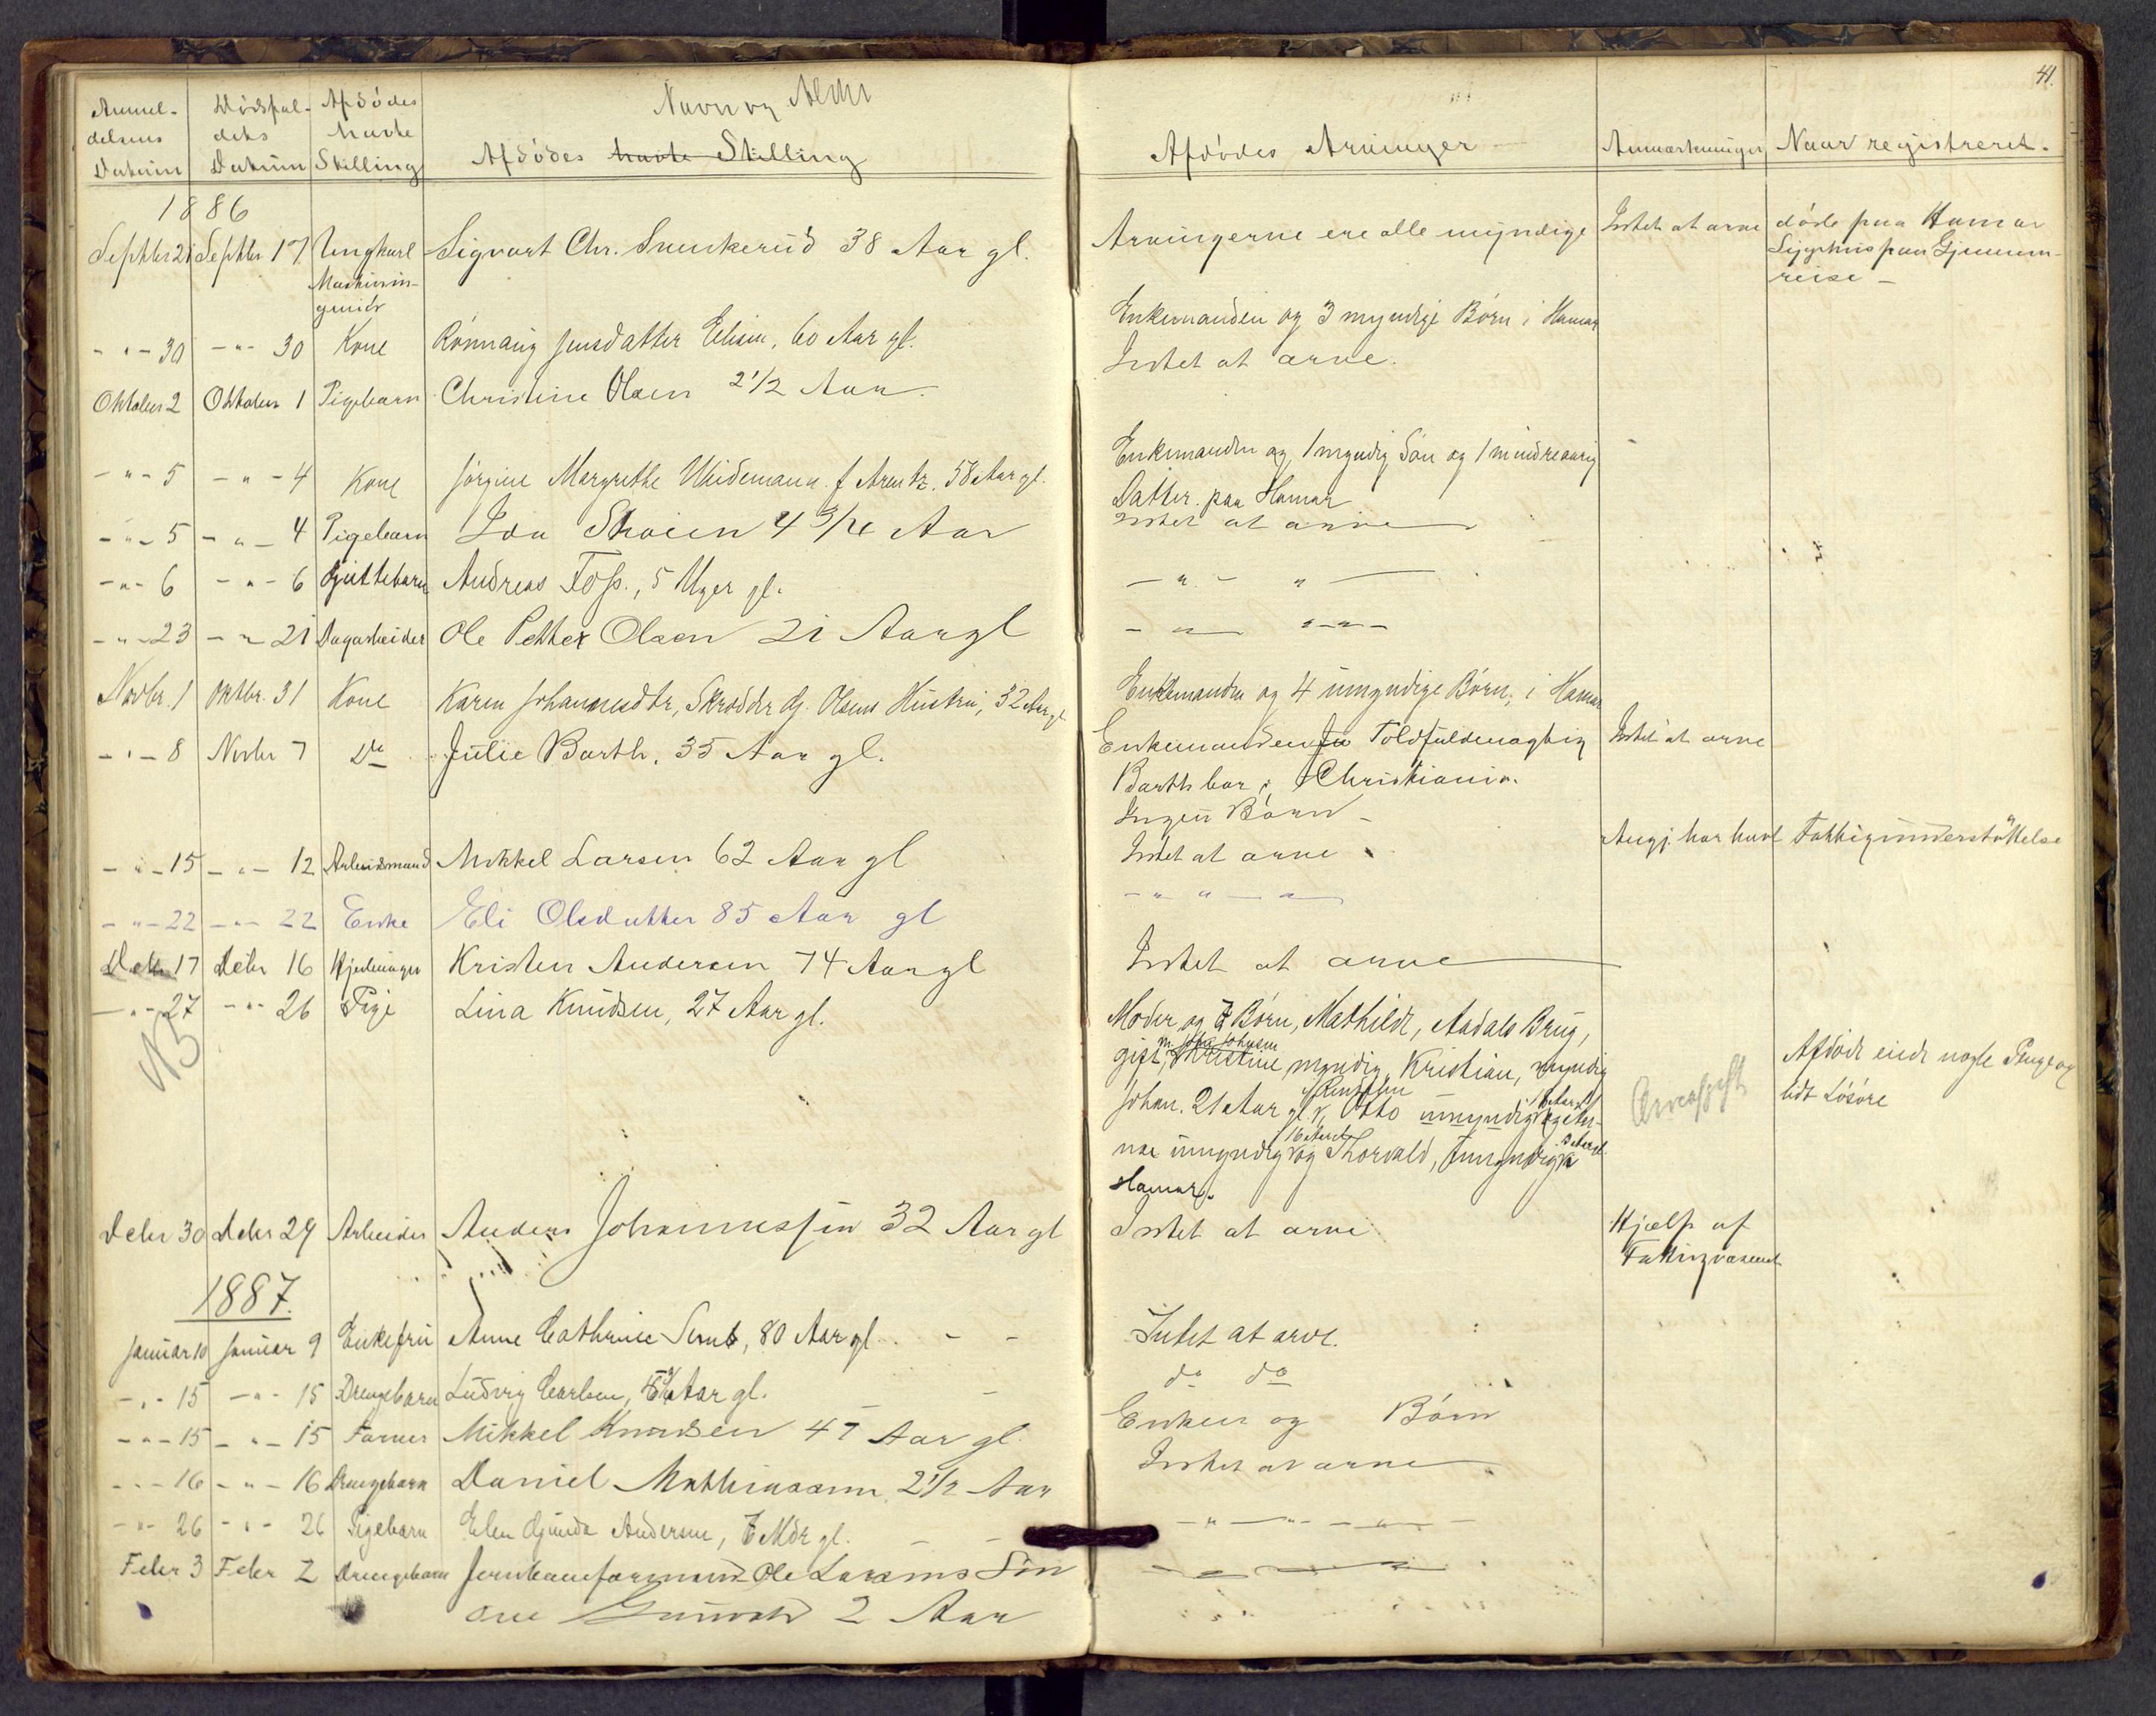 41.
Anmel- Dødsfal- Afdødes Navn og Alder
delsens dets havte
Datum Datum Stilling Afdødes havte Stilling Afdødes Arvinger Anmærkninger Naar registreret.
1886
Septbr 21 Septbr 17 Ungkarl Sigvart Chr. 38 Aar gl. Arvingerne ere alle myndige Intet at arve døde paa Hamar
Maskinin- Sygehus paa Gjennem-
geniør reise -
- " - 30 - " - 30 Kone Rønnaug Jensdatter 60 Aar gl. Enkemanden og 3 myndige Børn i Hamar
Intet at arve.
Oktober 2 Oktober 1 Pigebarn Christine Olsen 2 1/2 Aar
- " - 5 - " - 4 Kone Jørgine Margrethe f. Arentz. 58 Aar gl. Enkemanden og 1 myndig Søn og 1 mindreaarig
Datter. paa Hamar
- " - 5 - " - 4 Pigebarn Ida 4 3/4 Aar Intet at arve
- " - 6 - " - 6 Guttebarn Andreas Foss., 5 Uger gl. - " - "
- " - 23 - " - 21 Dagarbeider Ole Petter Olsen 21 Aar gl - " - " -
Novbr. 1 Oktbr. 31 Kone Karen Johannesdtr, Skrædder Olsens Hustru, 32 Aar gl. Enkemanden og 4 umyndige Børn, i Hamar
- " - 8 Novbr 7 Do Julie Barth, 35 Aar gl. Enkemanden Toldfuldmægtig Intet at arve
Barth bor i Christiania.
Ingen Børn -
- " - 15 - " - 12 Arbeidsmand Mikkel Larsen 62 Aar gl Intet at arve Angj. har havt Fattigunderstøttelse
- " - 22 - " - 22 Enke Eli Olsdatter 85 Aar gl - " " - "
Debr 17 Debr 16 Kristen Andersen 74 Aar gl Intet at arve
- " - 27 - " - 26 Pige Lina Knudsen, 27 Aar gl. Moder og 7 Børn, Mathilde, Aadals Brug,
NB gift, m. Johnsen Kristine myndig, Kristian, myndig Afdøde eiede nogle Penge og
Johan. 21 Aar gl., Otto umyndig lidt Løsøre
umyndig 16 Aar og Thorvald, umyndig
Hamar.
Debr 30 Debr 29 Arbeider Anders Johannessen 32 Aar gl Intet at arve Hjælp af
Fattigvæsenet
1887.
Januar 10 Januar 9 Enkefru Anne Cathrine 80 Aar gl. - - Intet at arve.
- " - 15 - " - 15 Drengebarn Ludvig Carlsen, Aar gl. - do do
- " - 15 - " - 15 Farver Mikkel Knudsen 47 Aar gl Enken og Børn
- " - 16 - " - 16 Drengebarn Daniel Mathiassen 2 1/2 Aar Intet at arve
- " - 26 - " - 26 Pigebarn Elen Gunda Andersen, 7 Mdr gl. - " - " - " -
Febr 3 Febr 2 Drengebarn Jernbaneformand Ole Larsens Søn - " - "
2 Aar